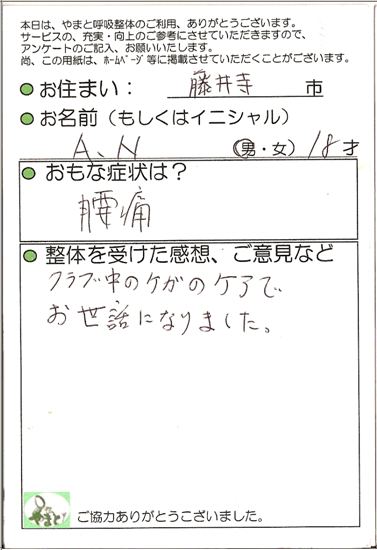 本日は、やまと呼吸整体のご利用、ありがとうございます。
サービスの、充実・向上のご参考にさせていただきますので、
アンケートのご記入、お願いいたします。
尚、この用紙は、ﾎｰﾑﾍﾟｰｼﾞ等に掲載させていただくことがございます。
●お住まい： 藤井寺 市
●お名前（もしくはイニシャル）
A、N （男・女） 18才
●おもな症状は？
腰痛
●整体を受けた感想、ご意見など
クラブ中のケガのケアで
お世話になりました。
やまと
ご協力ありがとうこざいました。